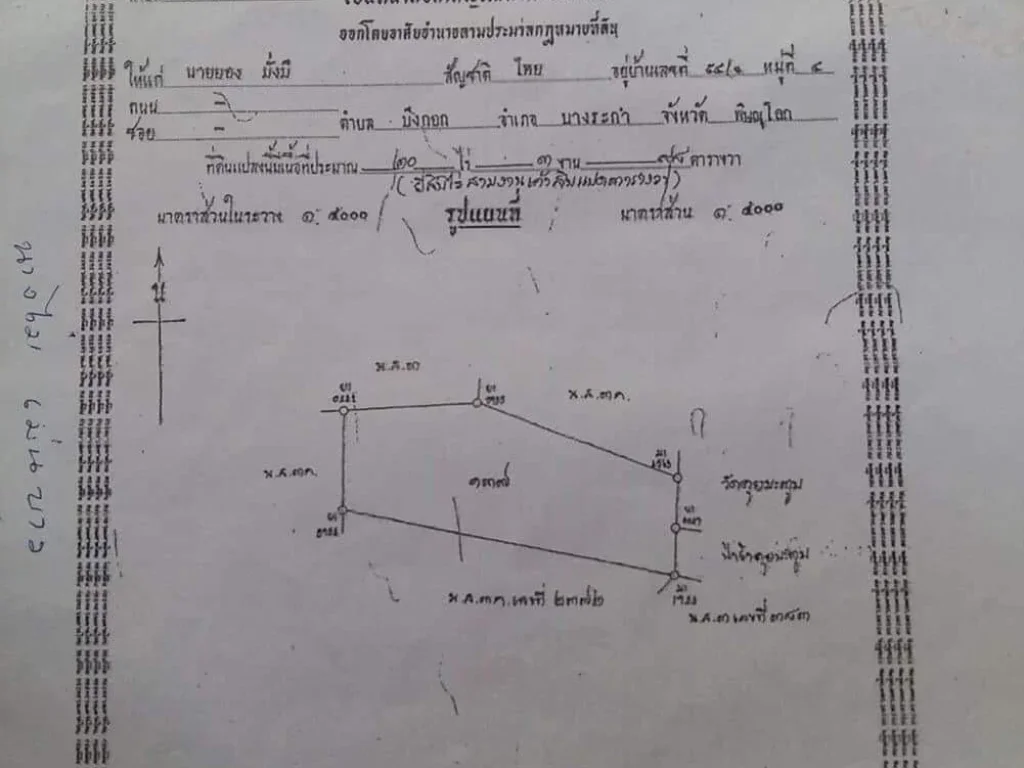 ออกโดยอาศัยอำนาจตามประมวลกฎหมายที่ดิน
ให้แก่ นายยอง มั่งมี สัญชาติ ไทย อยู่บ้านเลขที่ ๔๔/๑ หมู่ที่ ๔
ถนน –
ซอย – ตำบล บึงกอก อำเภอ บางระกำ จังหวัด พิษณุโลก
ที่ดินแปลงนี้มีเนื้อที่ประมาณ ๒๐ ไร่ ๓ งาน ๙๘ ตารางวา
(ยี่สิบไร่สามงานเก้าสิบแปดตารางวา)
มาตราส่วนในระวาง ๑: ๕๐๐๐ รูปแผนที่ มาตราส่วน ๑: ๕๐๐๐
น
น.ส.๓
น.ส.๓ก.
น.ส.๓ก.
๑๓๗
วัดคุยมะตูม
ป่าช้าคุยมะตูม
น.ส.๓ก.เลขที่ ๒๓๗๒
น.ส.๓ เลขที่